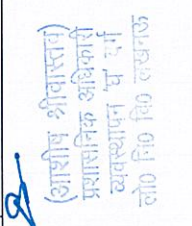 (आशीष श्रीवास्तव)
प्रशासनिक अधिकारी
व्यवस्थापन घ वर्ग
लो० नि० वि० लखनऊ